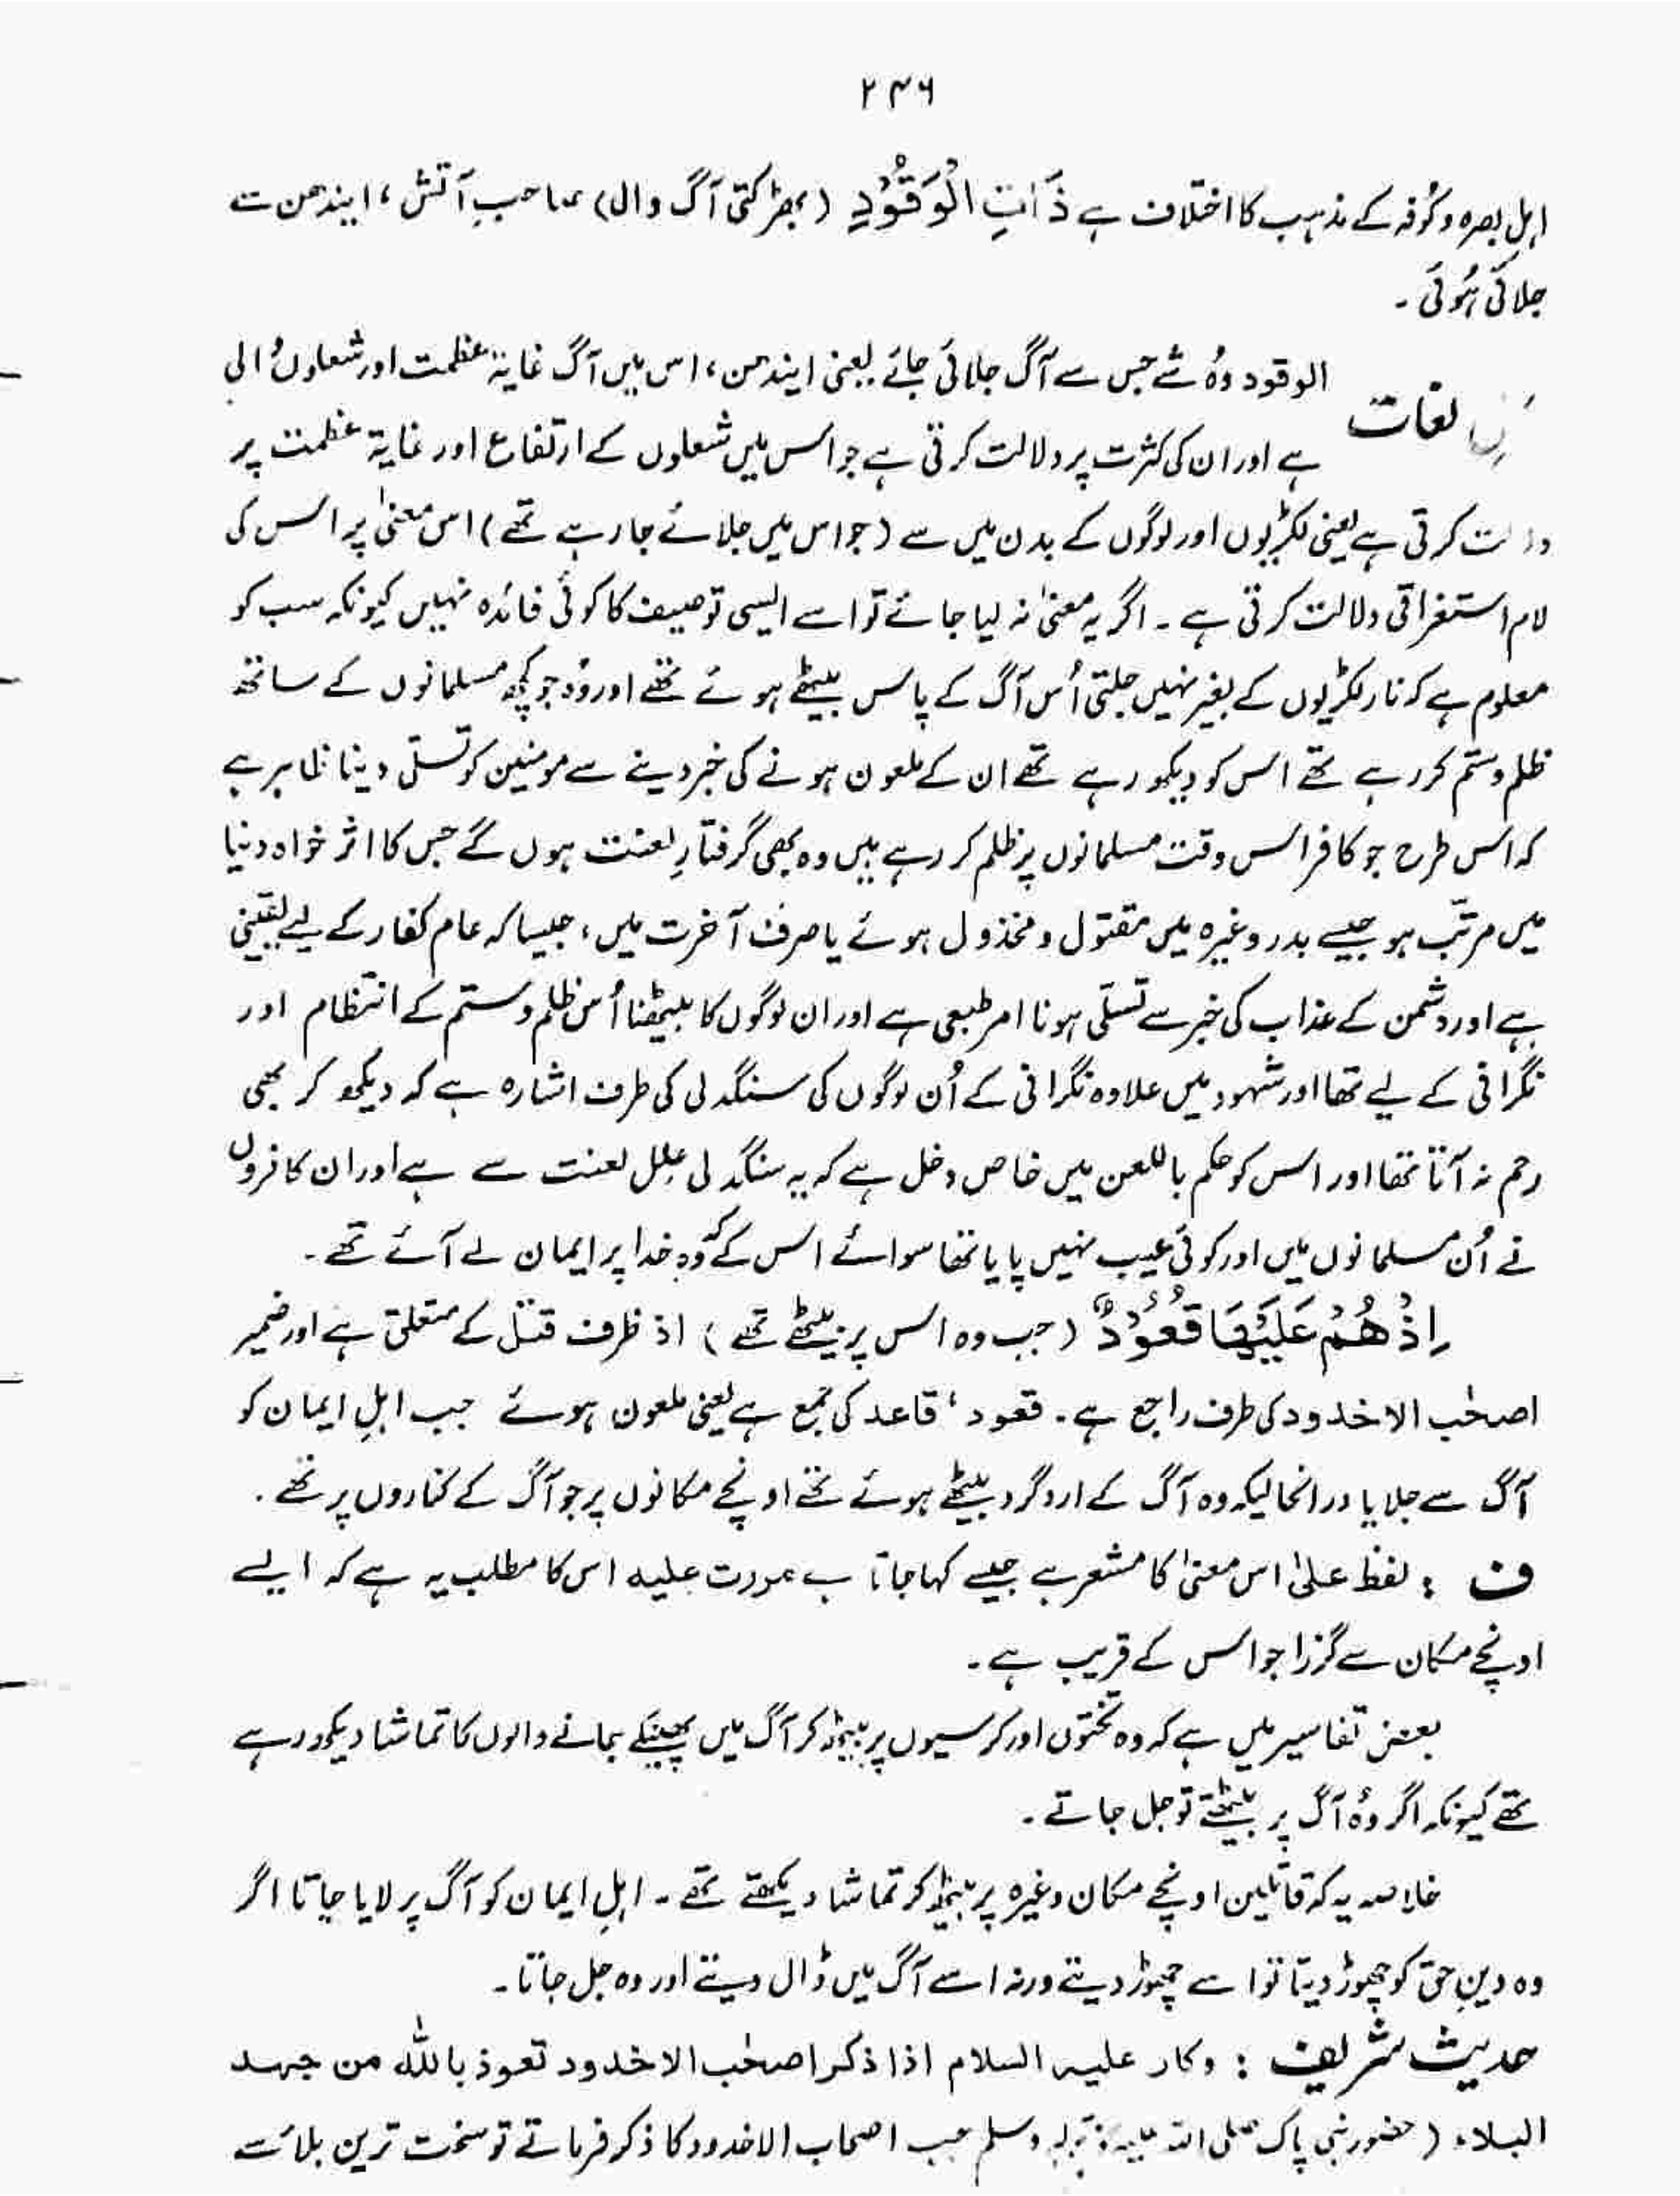 ۲۴۶
اہلِ بصرہ و کُوفہ کے مذہب کا اختلاف ہے ذَاتِ الْوَقُوْدِ (بھڑکتی آگ والی) صاحبِ آتش ، ایندھن سے
جلائی ہُوئی ۔
الوقود وُہ شے جس سے آگ جلائی جائے یعنی ایندھن ، اس میں آگ غایۃ عظمت اور شعلوں والی
لغات
ہے اور ان کی کثرت پر دلالت کرتی ہے جو اس میں شعلوں کے ارتفاع اور غایۃ عظمت پر
دلالت کرتی ہے یعنی لکڑیوں اور لوگوں کے بدن میں سے (جو اس میں جلائے جا رہے تھے) اس معنیٰ پر اس کی
لام استغراقی دلالت کرتی ہے ۔ اگر یہ معنیٰ نہ لیا جائے تو اسے ایسی توصیف کا کوئی فائدہ نہیں کیونکہ سب کو
معلوم ہے کہ نار لکڑیوں کے بغیر نہیں جلتی اُس آگ کے پاس بیٹھے ہوئے تھے اور وُہ جو کچھ مسلمانوں کے ساتھ
ظلم و ستم کر رہے تھے اس کو دیکھ رہے تھے ان کے ملعون ہونے کی خبر دینے سے مومنین کو تسلّی دینا ظاہر ہے
کہ اس طرح جو کافر اس وقت مسلمانوں پر ظلم کر رہے ہیں وہ بھی گرفتارِ لعنت ہوں گے جس کا اثر خواہ دنیا
میں مرتّب ہو جیسے بدر وغیرہ میں مقتول و مخذول ہوئے یا صرف آخرت میں ، جیسا کہ عام کفار کے لیے یقینی
ہے اور دشمن کے عذاب کی خبر سے تسلّی ہونا امر طبعی ہے اور ان لوگوں کا بیٹھنا اُس ظلم و ستم کے انتظام اور
نگرانی کے لیے تھا اور شہود میں علاوہ نگرانی کے اُن لوگوں کی سنگدلی کی طرف اشارہ ہے کہ دیکھ کر بھی
رحم نہ آتا تھا اور اس کو حکم باللعن میں خاص دخل ہے کہ یہ سنگدلی عِلل لعنت سے ہے اور ان کافروں
نے اُن مسلمانوں میں اور کوئی عیب نہیں پایا تھا سوائے اس کے کہ وہ خدا پر ایمان لے آئے تھے ۔
اِذْ هُمْ عَلَيْهَا قُعُوْدٌ (جب وہ اس پر بیٹھے تھے) اذ ظرف قتل کے متعلق ہے اور ضمیر
اصحٰب الاخدود کی طرف راجع ہے ۔ قعود ، قاعد کی جمع ہے یعنی ملعون ہوئے جب اہلِ ایمان کو
آگ سے جلایا درانحالیکہ وہ آگ کے اردگرد بیٹھے ہوئے تھے اونچے مکانوں پر جو آگ کے کناروں پر تھے ۔
ف : لفظ علیٰ اس معنیٰ کا مشعر ہے جیسے کہا جاتا ہے مررت علیه اس کا مطلب یہ ہے کہ ایسے
اونچے مکان سے گزرا جو اس کے قریب ہے ۔
بعض تفاسیر میں ہے کہ وہ تختوں اور کرسیوں پر بیٹھ کر آگ میں پھینکے جانے والوں کا تماشا دیکھ رہے
تھے کیونکہ اگر وُہ آگ پر بیٹھتے تو جل جاتے ۔
خلاصہ یہ کہ قاتلین اونچے مکان وغیرہ پر بیٹھ کر تماشا دیکھتے تھے ۔ اہلِ ایمان کو آگ پر لایا جاتا اگر
وہ دینِ حق کو چھوڑ دیتا تو اسے چھوڑ دیتے ورنہ اسے آگ میں ڈال دیتے اور وہ جل جاتا ۔
حدیث شریف : وکان علیہ السلام اذا ذکر اصحٰب الاخدود تعوذ باللہ من جہد
البلاء (حضور نبی پاک صلی اللہ علیہ وآلہ وسلم جب اصحاب الاخدود کا ذکر فرماتے تو سخت ترین بلا سے